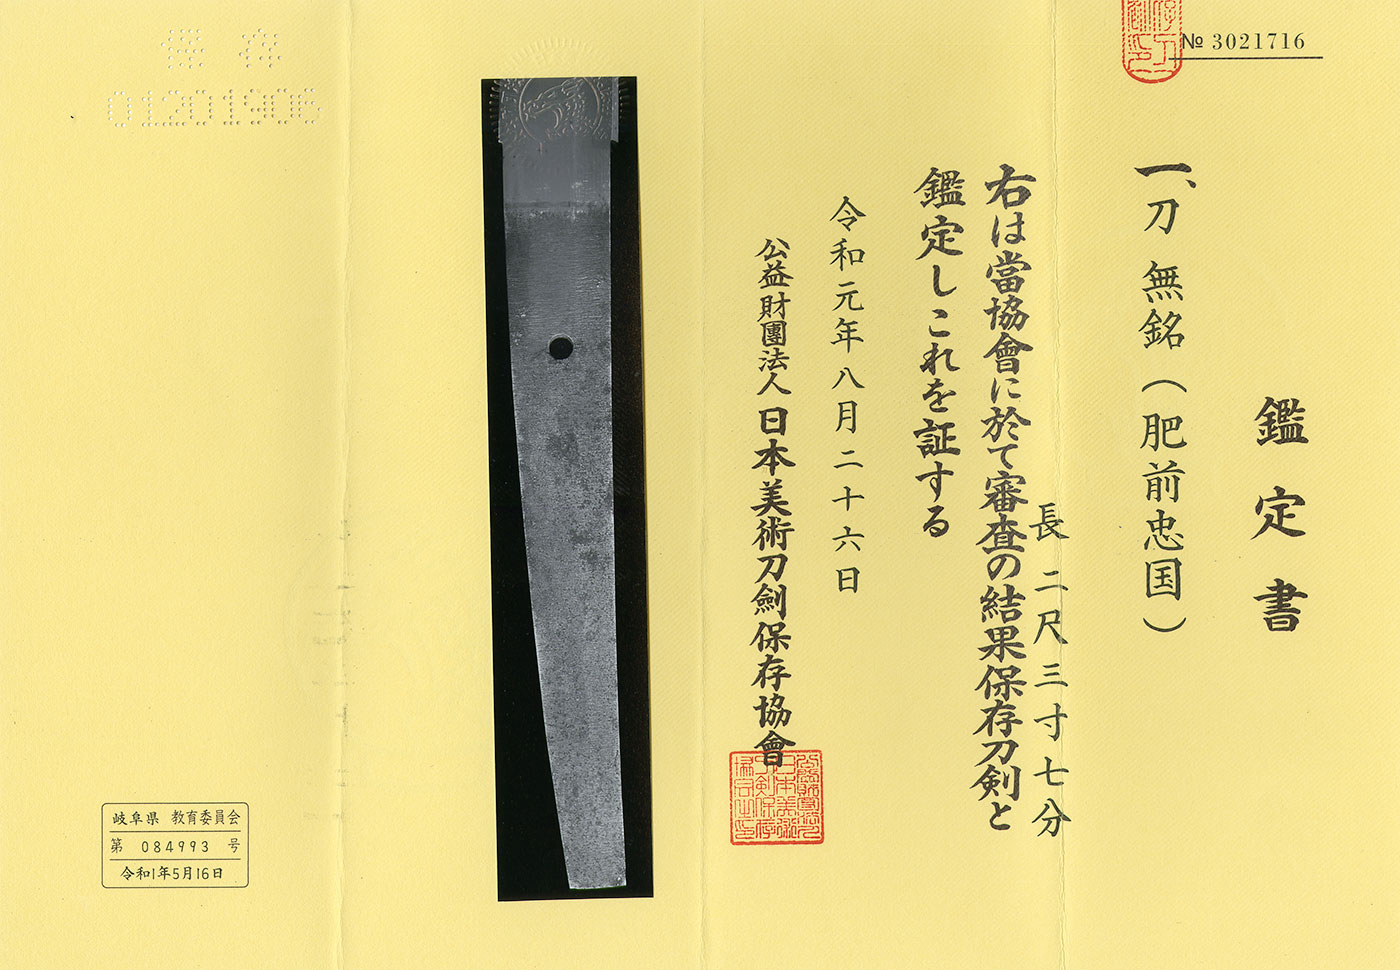 № 3021716
鑑定書
一、刀 無銘(肥前忠国)
長 二尺三寸七分
右は當協會に於て審査の結果保存刀剣と
鑑定しこれを証する
令和元年八月二十六日
公益財團法人日本美術刀劍保存協會
保存
01201906
岐阜県 教育委員会
第 084993 号
令和1年5月16日